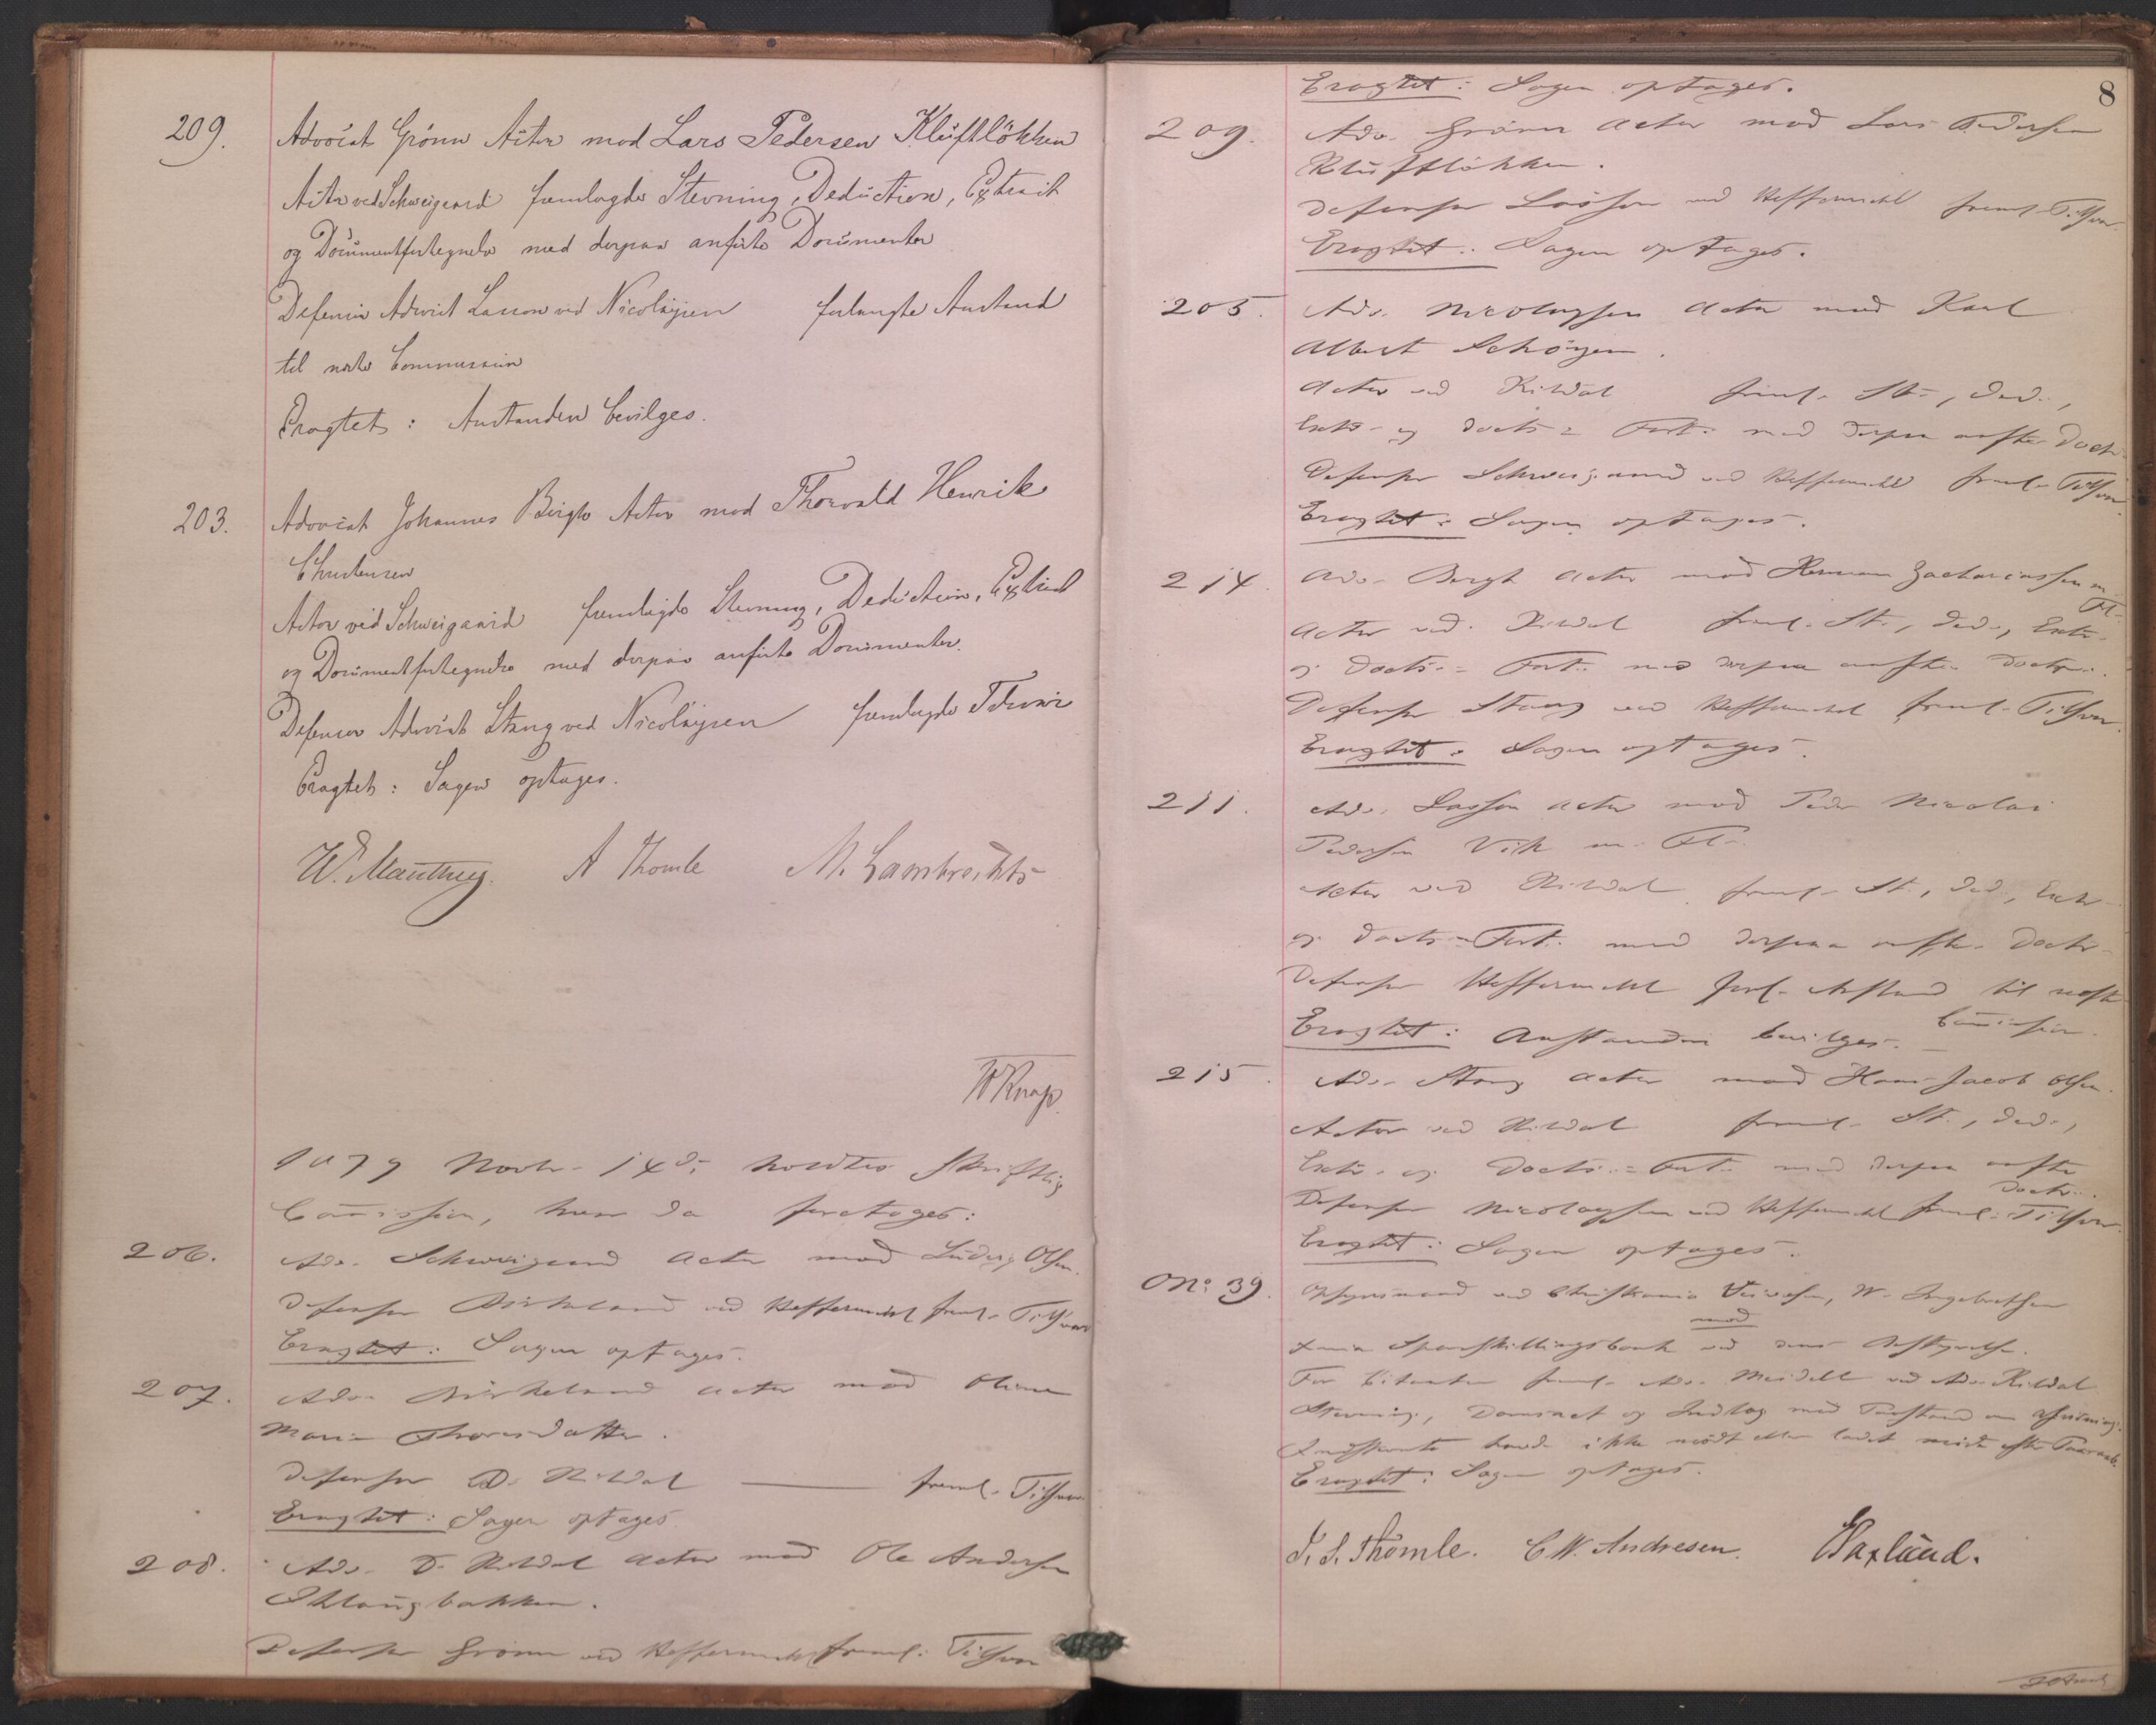 209. Advocat Grönn Actor mod Lars Pedersen Klüftlökken
Actor ved Schweigaard fremlagde Stevning, Deduction, Extract
og Documentfortegnelse med derpaa anførte Documenter
Defensor Advocat Lasson ved Nicolaysen forlangte Anstand
til næste Commission
Eragtet: Anstanden bevilges.
203. Advocat Johannes Bergh Actor mod Thorvald Henrik
Christensen
Actor ved Schweigaard fremlagde Stevning, Deduction, Extract
og Documentfortegnelse med derpaa anførte Documenter.
Defensor Advocat Stang ved Nicolaysen fremlagde Tilsvar
Eragtet: Sagen optages.
W. Manthey. A Thomle M. Lambrechts
1879 Novbr. 14de holdtes skriftlig
Com̄ission, hvor da foretoges:
206. Adv. Schweigaard Actor mod Ludvig Olsen.
Defensor Birkeland ved Heffermehl freml. Tilsvar
Eragtet: Sagen optages.
207. Adv. Birkeland Actor mod Oline
Marie Thorsdatter.
Defensor D. Kildal — freml. Tilsvar
Eragtet: Sagen optages.
208. Adv. D. Kildal Actor mod Ole Andersen
Defensor Grönn ved Heffermehl freml. Tilsvar
8
Eragtet: Sagen optages.
209. Adv. Grönn Actor mod Lars Pedersen
Klüftlökken.
Defensor Lasson ved Heffermehl freml. Tilsvar.
Eragtet: Sagen optages.
205. Adv. Nicolaysen Actor mod Karl
Albert Schöyen.
Actor ved Kildal freml. St., Ded.,
Extr. og Docts = Fort. med derpaa anførte Doctr.
Defensor Schweigaard ved Heffermehl freml. Tilsvar.
Eragtet: Sagen optages.
214. Adv. Bergh Actor mod Herman Zachariassen m.
Fl.
Actor ved Kildal freml. St., Ded., Extr.
og Docts. = Fort. med derpaa anførte Doctr.
Defensor Stang ved Heffermehl freml. Tilsvar.
Eragtet: Sagen optages.
211. Adv. Lasson Actor mod Peder Nicolai
Pedersen Vik m. Fl.
Actor ved Kildal freml. St., Ded., Extr.
og Docts = Fort. med derpaa anførte Doctr.
Defensor Heffermehl forl. Anstand til næste
Com̄ission.
Eragtet: Anstanden bevilges.
215. Adv. Stang Actor mod Hans Jacob Olsen.
Actor ved Kildal freml. St., Ded.,
Extr. og Docts. = Fort. med derpaa anførte
Doctr.
Defensor Nicolaysen ved Heffermehl freml. Tilsvar.
Eragtet: Sagen optages.
No. 39. Opsynsmand ved Christiania W. Ingebretsen
mod
Xania Sparskillingsbank ved dens Bestyrelse.
For Citanten freml. Adv. Meidell ved Adv. Kildal
Stevning, Domsact og Indlæg med Paastand om
Indstevnte havde ikke mødt eller ladet møde efter Paaraab.
Eragtet: Sagen optages.
J. S. Thomle. C W. Andresen.